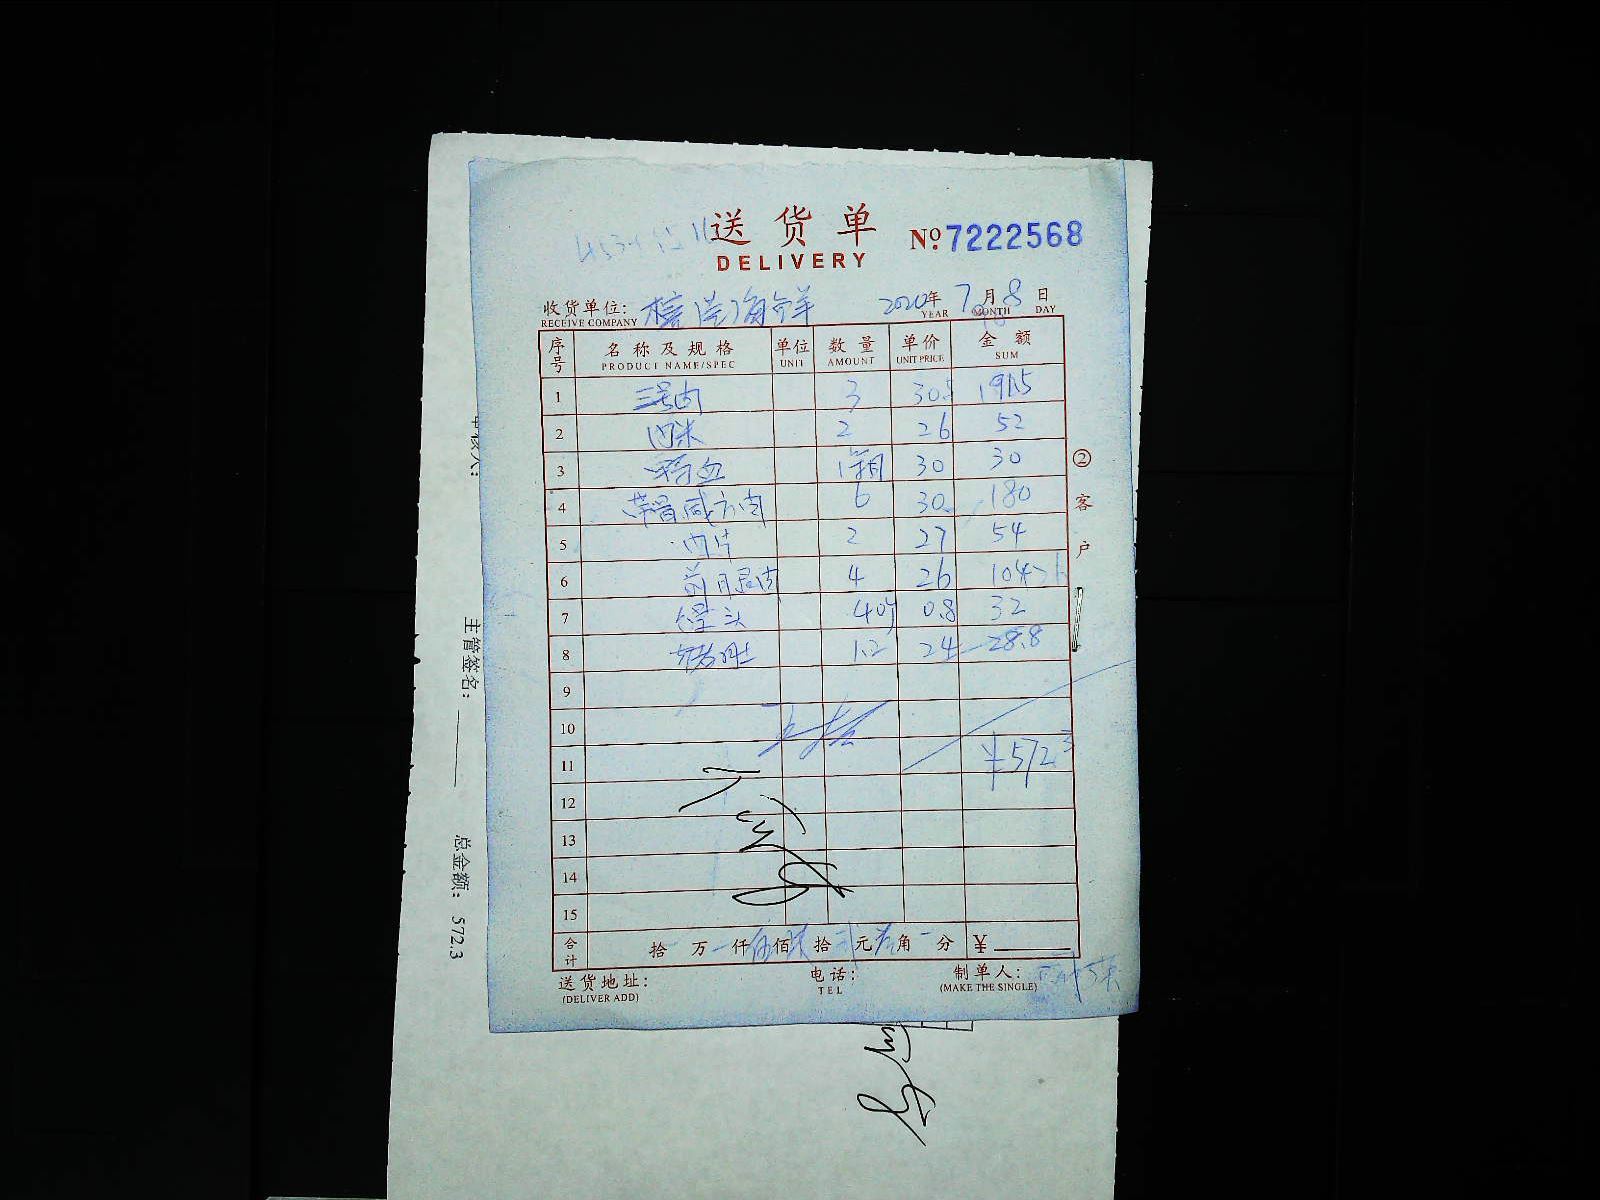 送货单
№7222568
DELIVERY
收货单位: 2020年 7月 8日
RECEIVE COMPANY YEAR MONTH DAY
序号 名称及规格 单位 数量 单价 金额
PRODUCT NAME/SPEC UNIT AMOUNT UNIT PRICE SUM
1 三号肉 3 30.5 91.5
2 肉米 2 26 52
3 30 30
4 6 30 180
5 肉片 2 27 54
6 4 26 104
7 馒头 40 0.8 32
8 猪肚 1.2 24 28.8
9
10
11 ¥572.3
12
13
14
15
合计 拾 万 仟伍佰柒拾贰元叁角 分 ¥
送货地址: 电话: 制单人:
(DELIVER ADD) TEL (MAKE THE SINGLE)
②客户
审核人:
主管签名:
总金额: 572.3